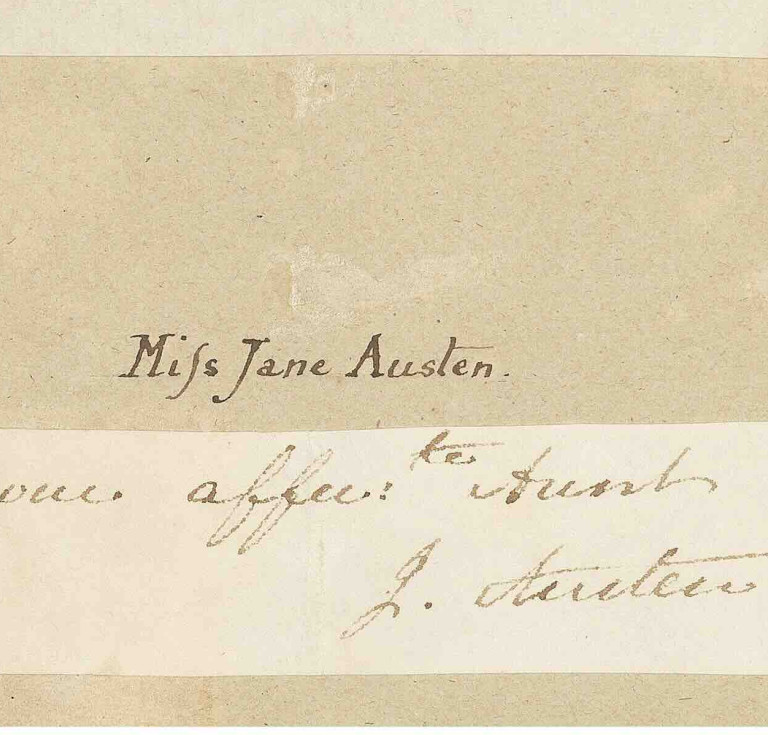 Miſs Jane Austen.
affec:te Aunt
J. Austen